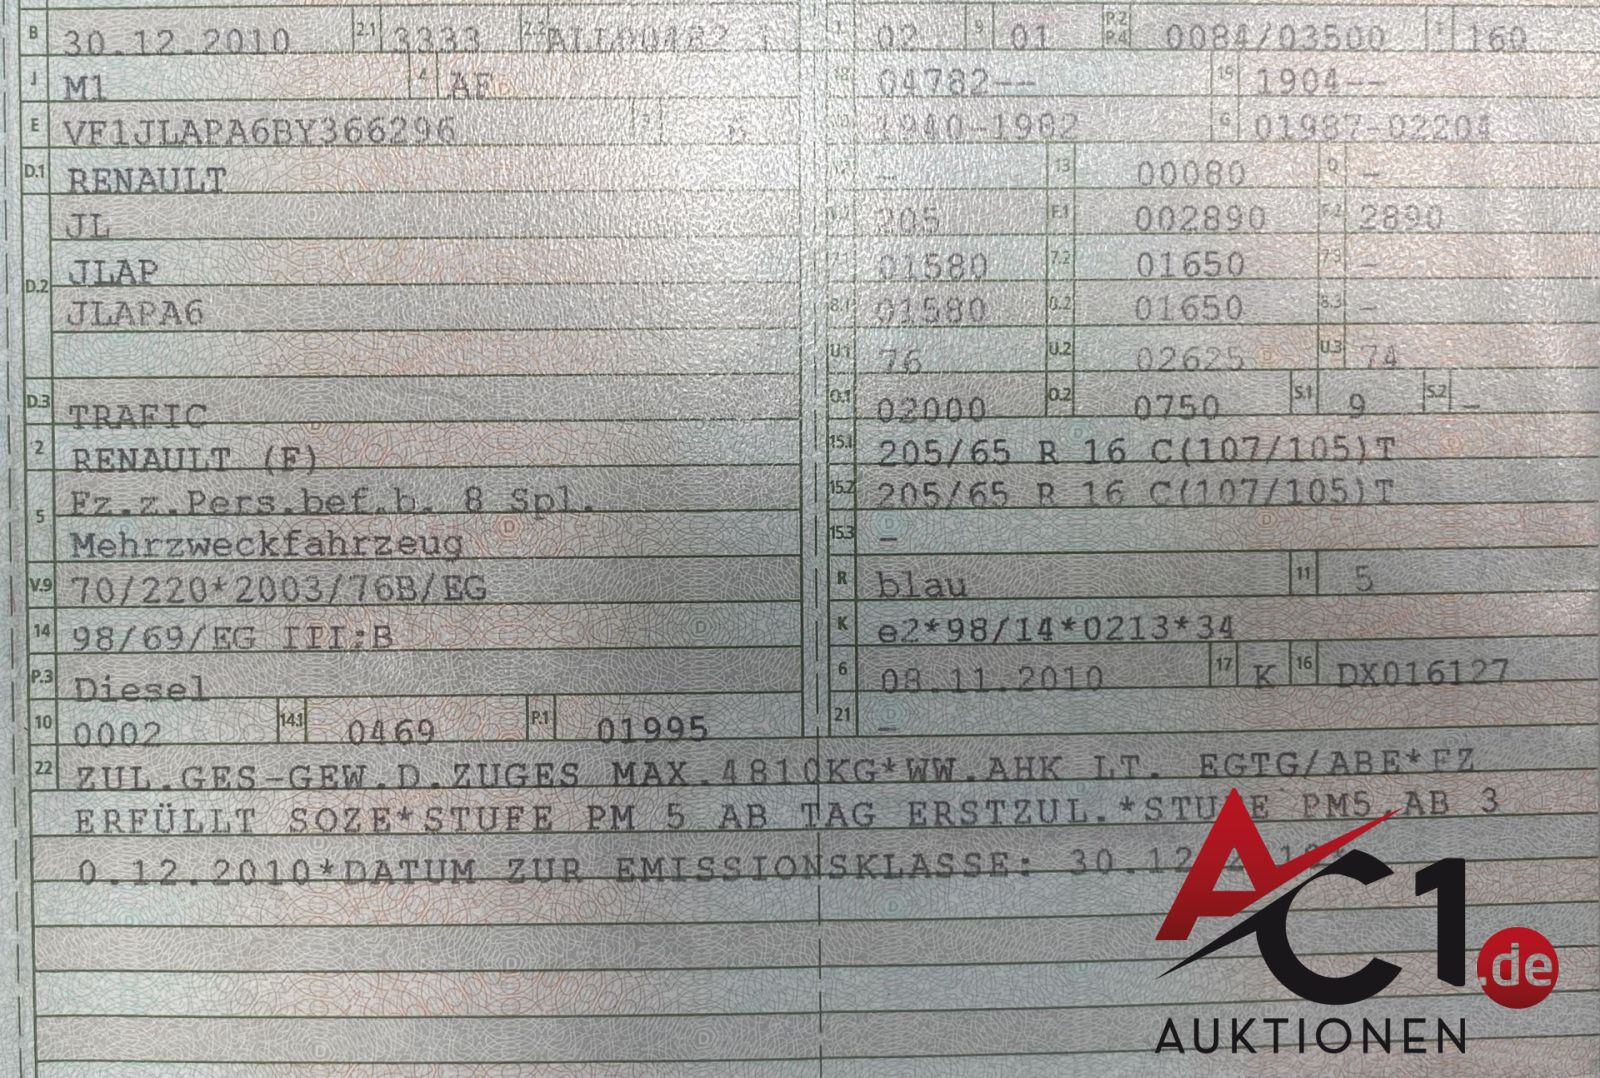 B 30.12.2010 2.1 3333 2.2
J M1 4 AF
E VF1JLAPA6BY366296 3
D.1 RENAULT
JL
D.2 JLAP
JLAPA6
D.3 TRAFIC
2 RENAULT (F)
5 Fz.z.Pers.bef.b. 8 Spl.
Mehrzweckfahrzeug
V.9 70/220*2003/76B/EG
14 98/69/EG III;B
P.3 Diesel
10 0002 14.1 0469 P.1 01995
L 02 9 01 P.2 P.4 0084/03500 T 160
18 04782-- 19 1904--
20 1940-1982 G 01987-02204
12 - 13 00080 Q -
V.7 205 F.1 002890 F.2 2890
7.1 01580 7.2 01650 7.3 -
8.1 01580 8.2 01650 8.3 -
U.1 76 U.2 02625 U.3 74
O.1 02000 O.2 0750 S.1 9 S.2 -
15.1 205/65 R 16 C(107/105)T
15.2 205/65 R 16 C(107/105)T
15.3 -
R blau 11 5
K e2*98/14*0213*34
6 08.11.2010 17 K 16 DX016127
21 -
22 ZUL.GES-GEW.D.ZUGES MAX.4810KG*WW.AHK LT. EGTG/ABE*FZ
ERFÜLLT SOZE*STUFE PM 5 AB TAG ERSTZUL.*STUFE PM5 AB 3
0.12.2010*DATUM ZUR EMISSIONSKLASSE: 30.12.2010*
AC1.de
AUKTIONEN